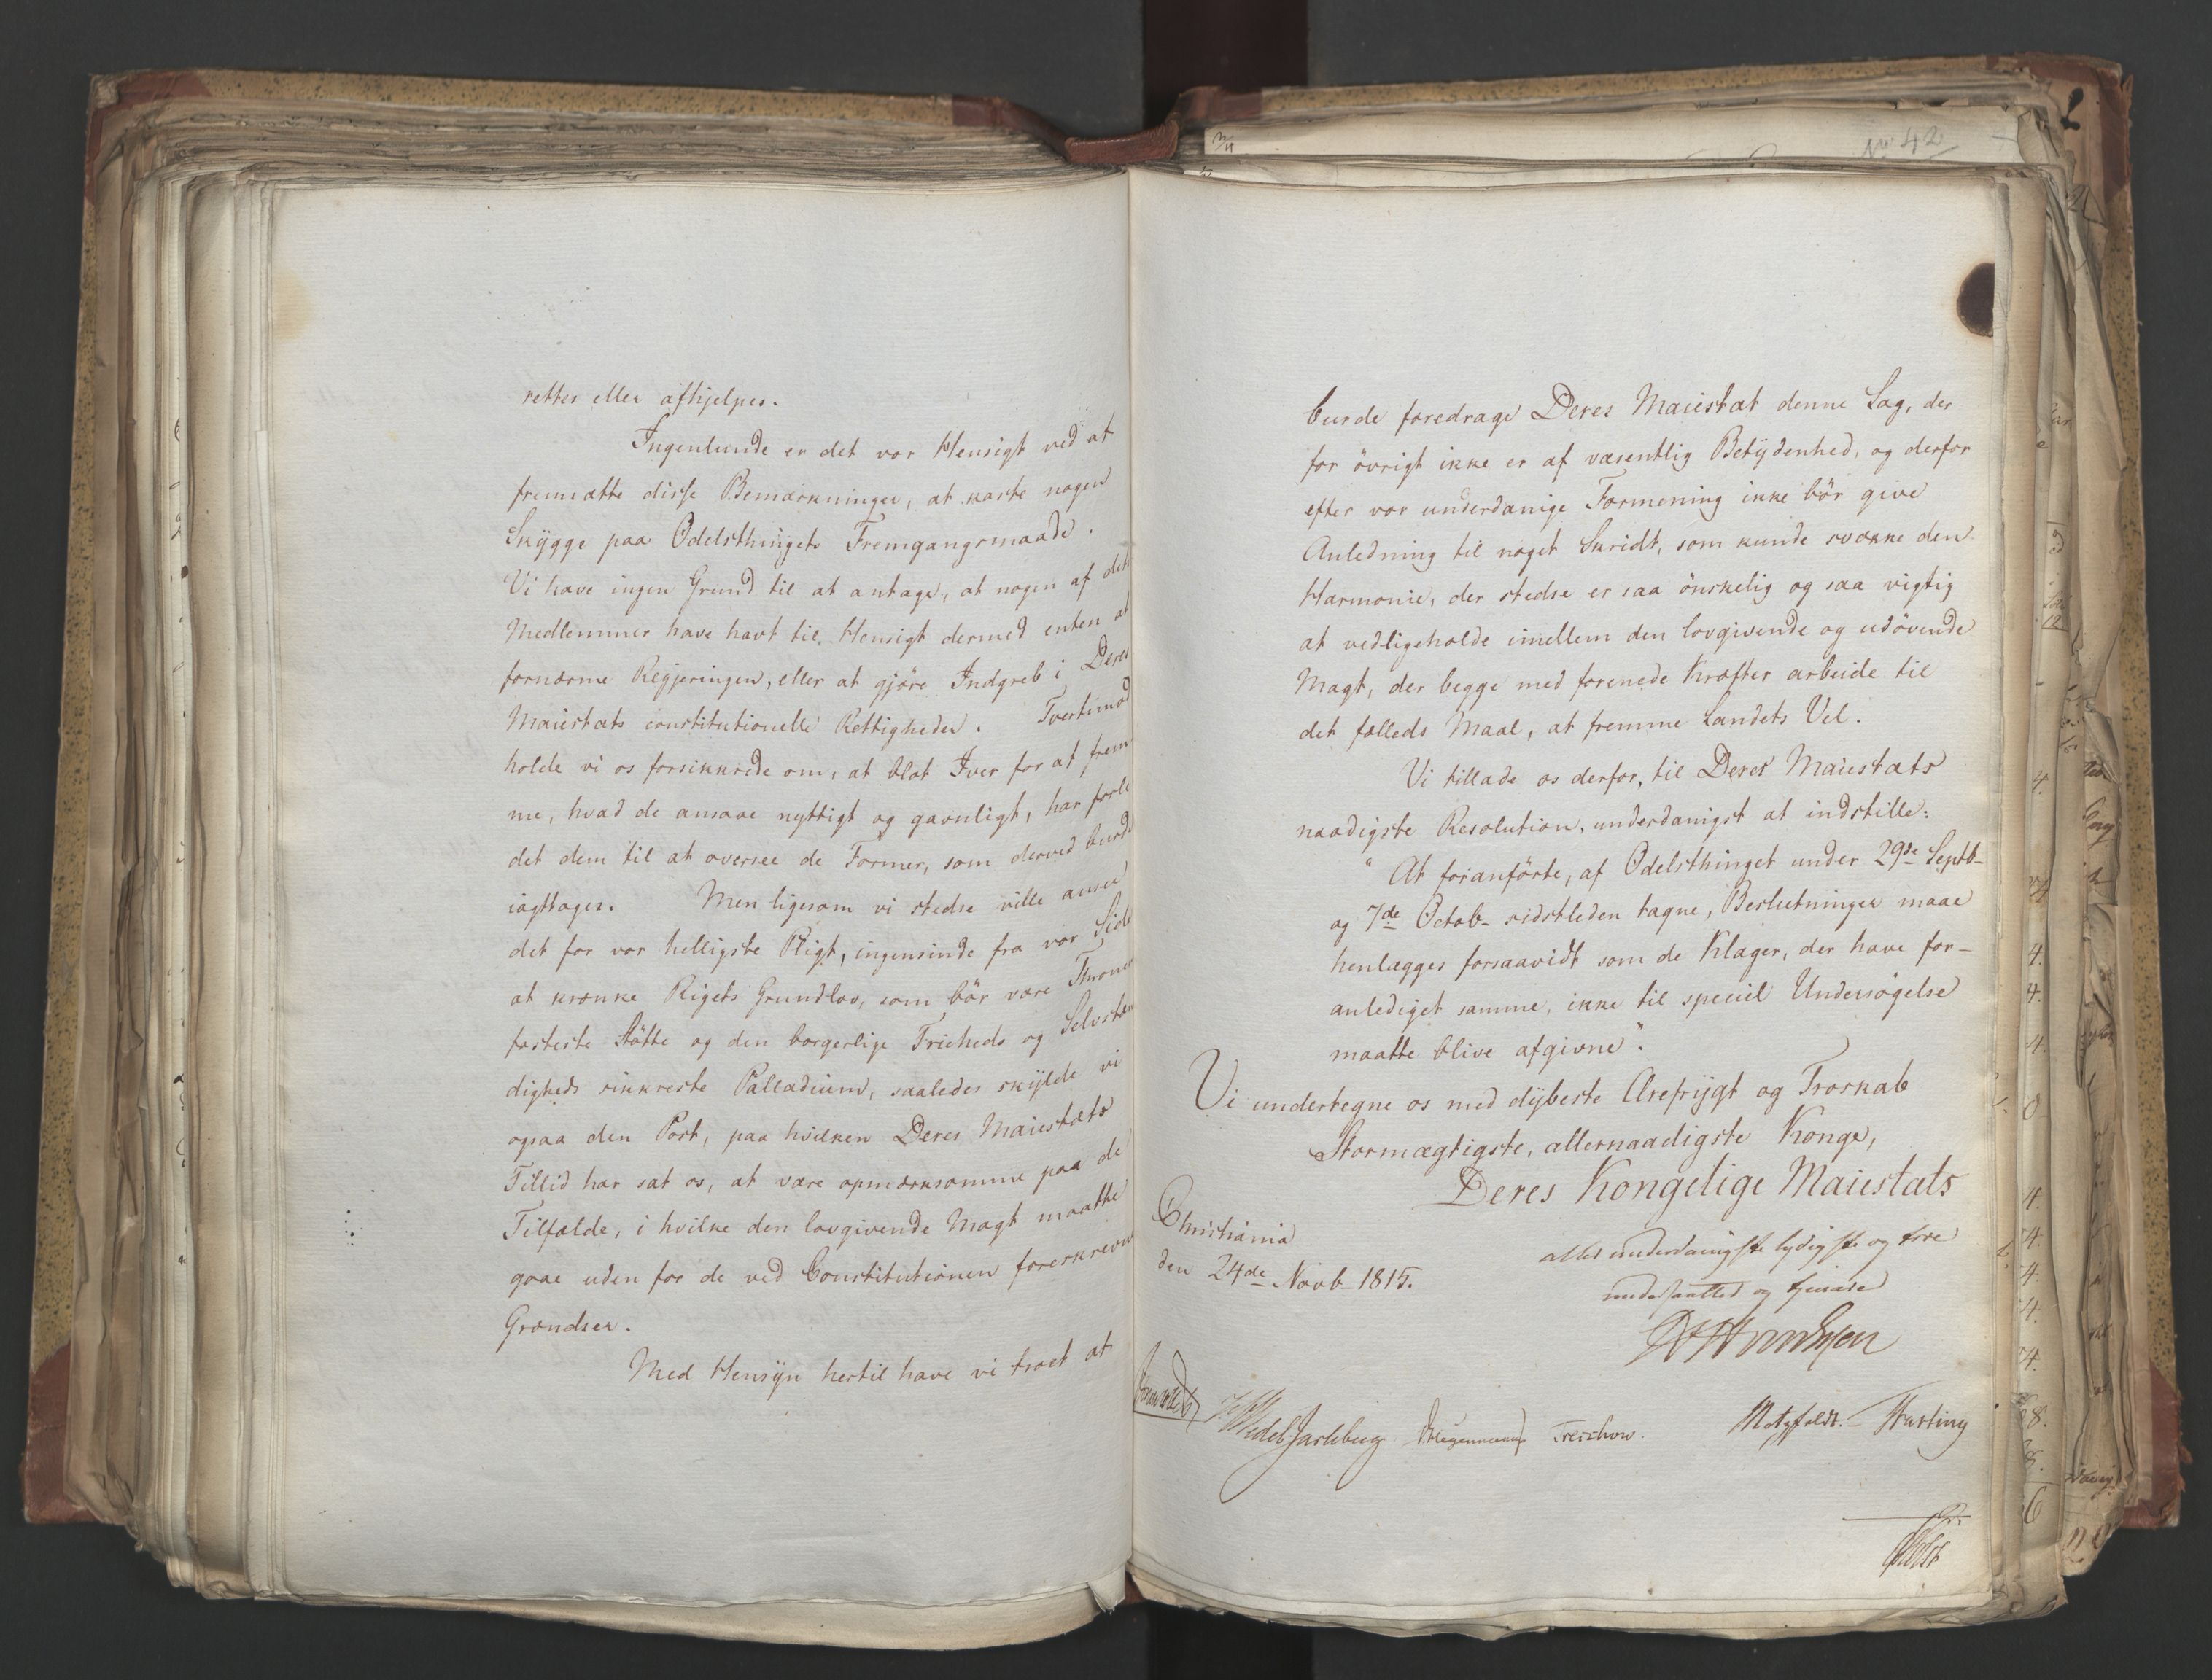 rettes eller afhjelpes.
Ingenlunde er det vor Hensigt ved at
fremsætte disse Bemærkninger, at kaste nogen
Skÿgge paa Odelsthingets Fremgangsmaade.
Vi have ingen Grund til at antage, at nogen af dets
Medlemmer have havt til Hensigt dermed enten at
fornærme Regjeringen, eller at gjöre Indgreb i Deres
Maiestæts constitutionelle Rettigheder. Tvertimod
holde vi os forsikkrede om, at blot Iver for at frem
me, hvad de ansaae nyttigt og gavnligt, har forle
det dem til at oversee de Former, som derved burde
iagttages. Men ligesom vi stedse ville ansee
det for vor helligste Pligt, ingensinde fra vor Side
at krænke Rigets Grundlov, som bör være Thronens
fasteste Stötte og den borgerlige Friheds og Selvstæn
digheds sikkreste Palladium, saaledes skÿlde vi
ogsaa den Post, paa hvilken Deres Maiestæts
Tillid har sat os, at være opmærksomme paa de
Tilfælde, i hvilke den lovgivende Magt maatte
gaae uden for de ved Constitutionen foreskrevne
Grændser.
Med Hensÿn hertil have vi troet at
No 42
burde foredrage Deres Maiestæt denne Sag, der
for övrigt ikke er af væsentlig Betÿdenhed, og derfor
efter vor underdanige Formening ikke bör give
Anledning til noget Skridt, som kunde svække den
Harmonie, der stedse er saa önskelig og saa vigtig
at vedligeholde imellem den lovgivende og udövende
Magt, der begge med forenede Kræfter arbeide til
det fælleds Maal, at fremme Landets Vel.
Vi tillade os derfor, til Deres Maiestæts
naadigste Resolution, underdanigst at indstille:
"At foranförte, af Odelsthinget under 29de Septb-
og 7de Octob- sidstleden tagne, Beslutninger maae
henlægges forsaavidt som de Klager, der have for-
anlediget samme, ikke til speciel Undersögelse
maatte blive afgivne".
Vi undertegne os med dÿbeste Ærefrÿgt og Troskab
Stormægtigste, allernaadigste Konge,
Deres Kongelige Maiestæts
Christiania
den 24de Novb- 1815.
allerunderdanigste lydigste og troe
undersaatter og tjenere
Wedel Jarlsberg Treschow. Motzfeldt. Hasting